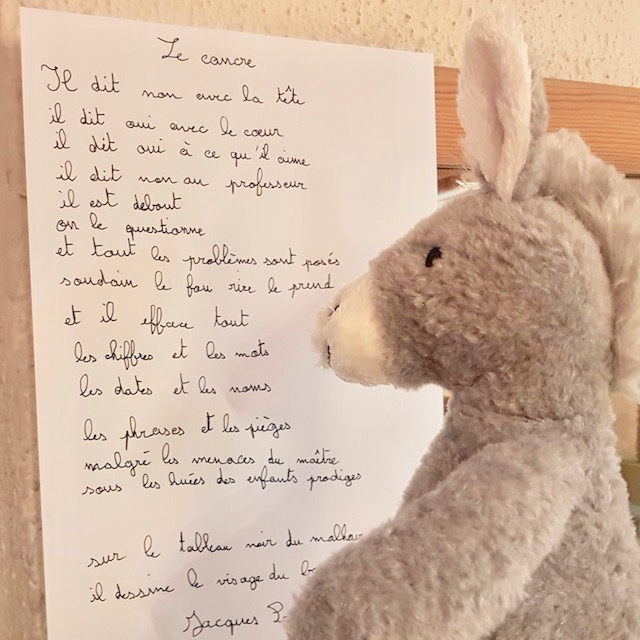 Le cancre
Il dit non avec la tête
il dit oui avec le cœur
il dit oui à ce qu'il aime
il dit non au professeur
il est debout
on le questionne
et tout les problèmes sont posés
soudain le fou rire le prend
et il efface tout
les chiffres et les mots
les dates et les noms
les phrases et les pièges
malgré les menaces du maître
sous les huées des enfants prodiges
sur le tableau noir du
il dessine le visage du
Jacques